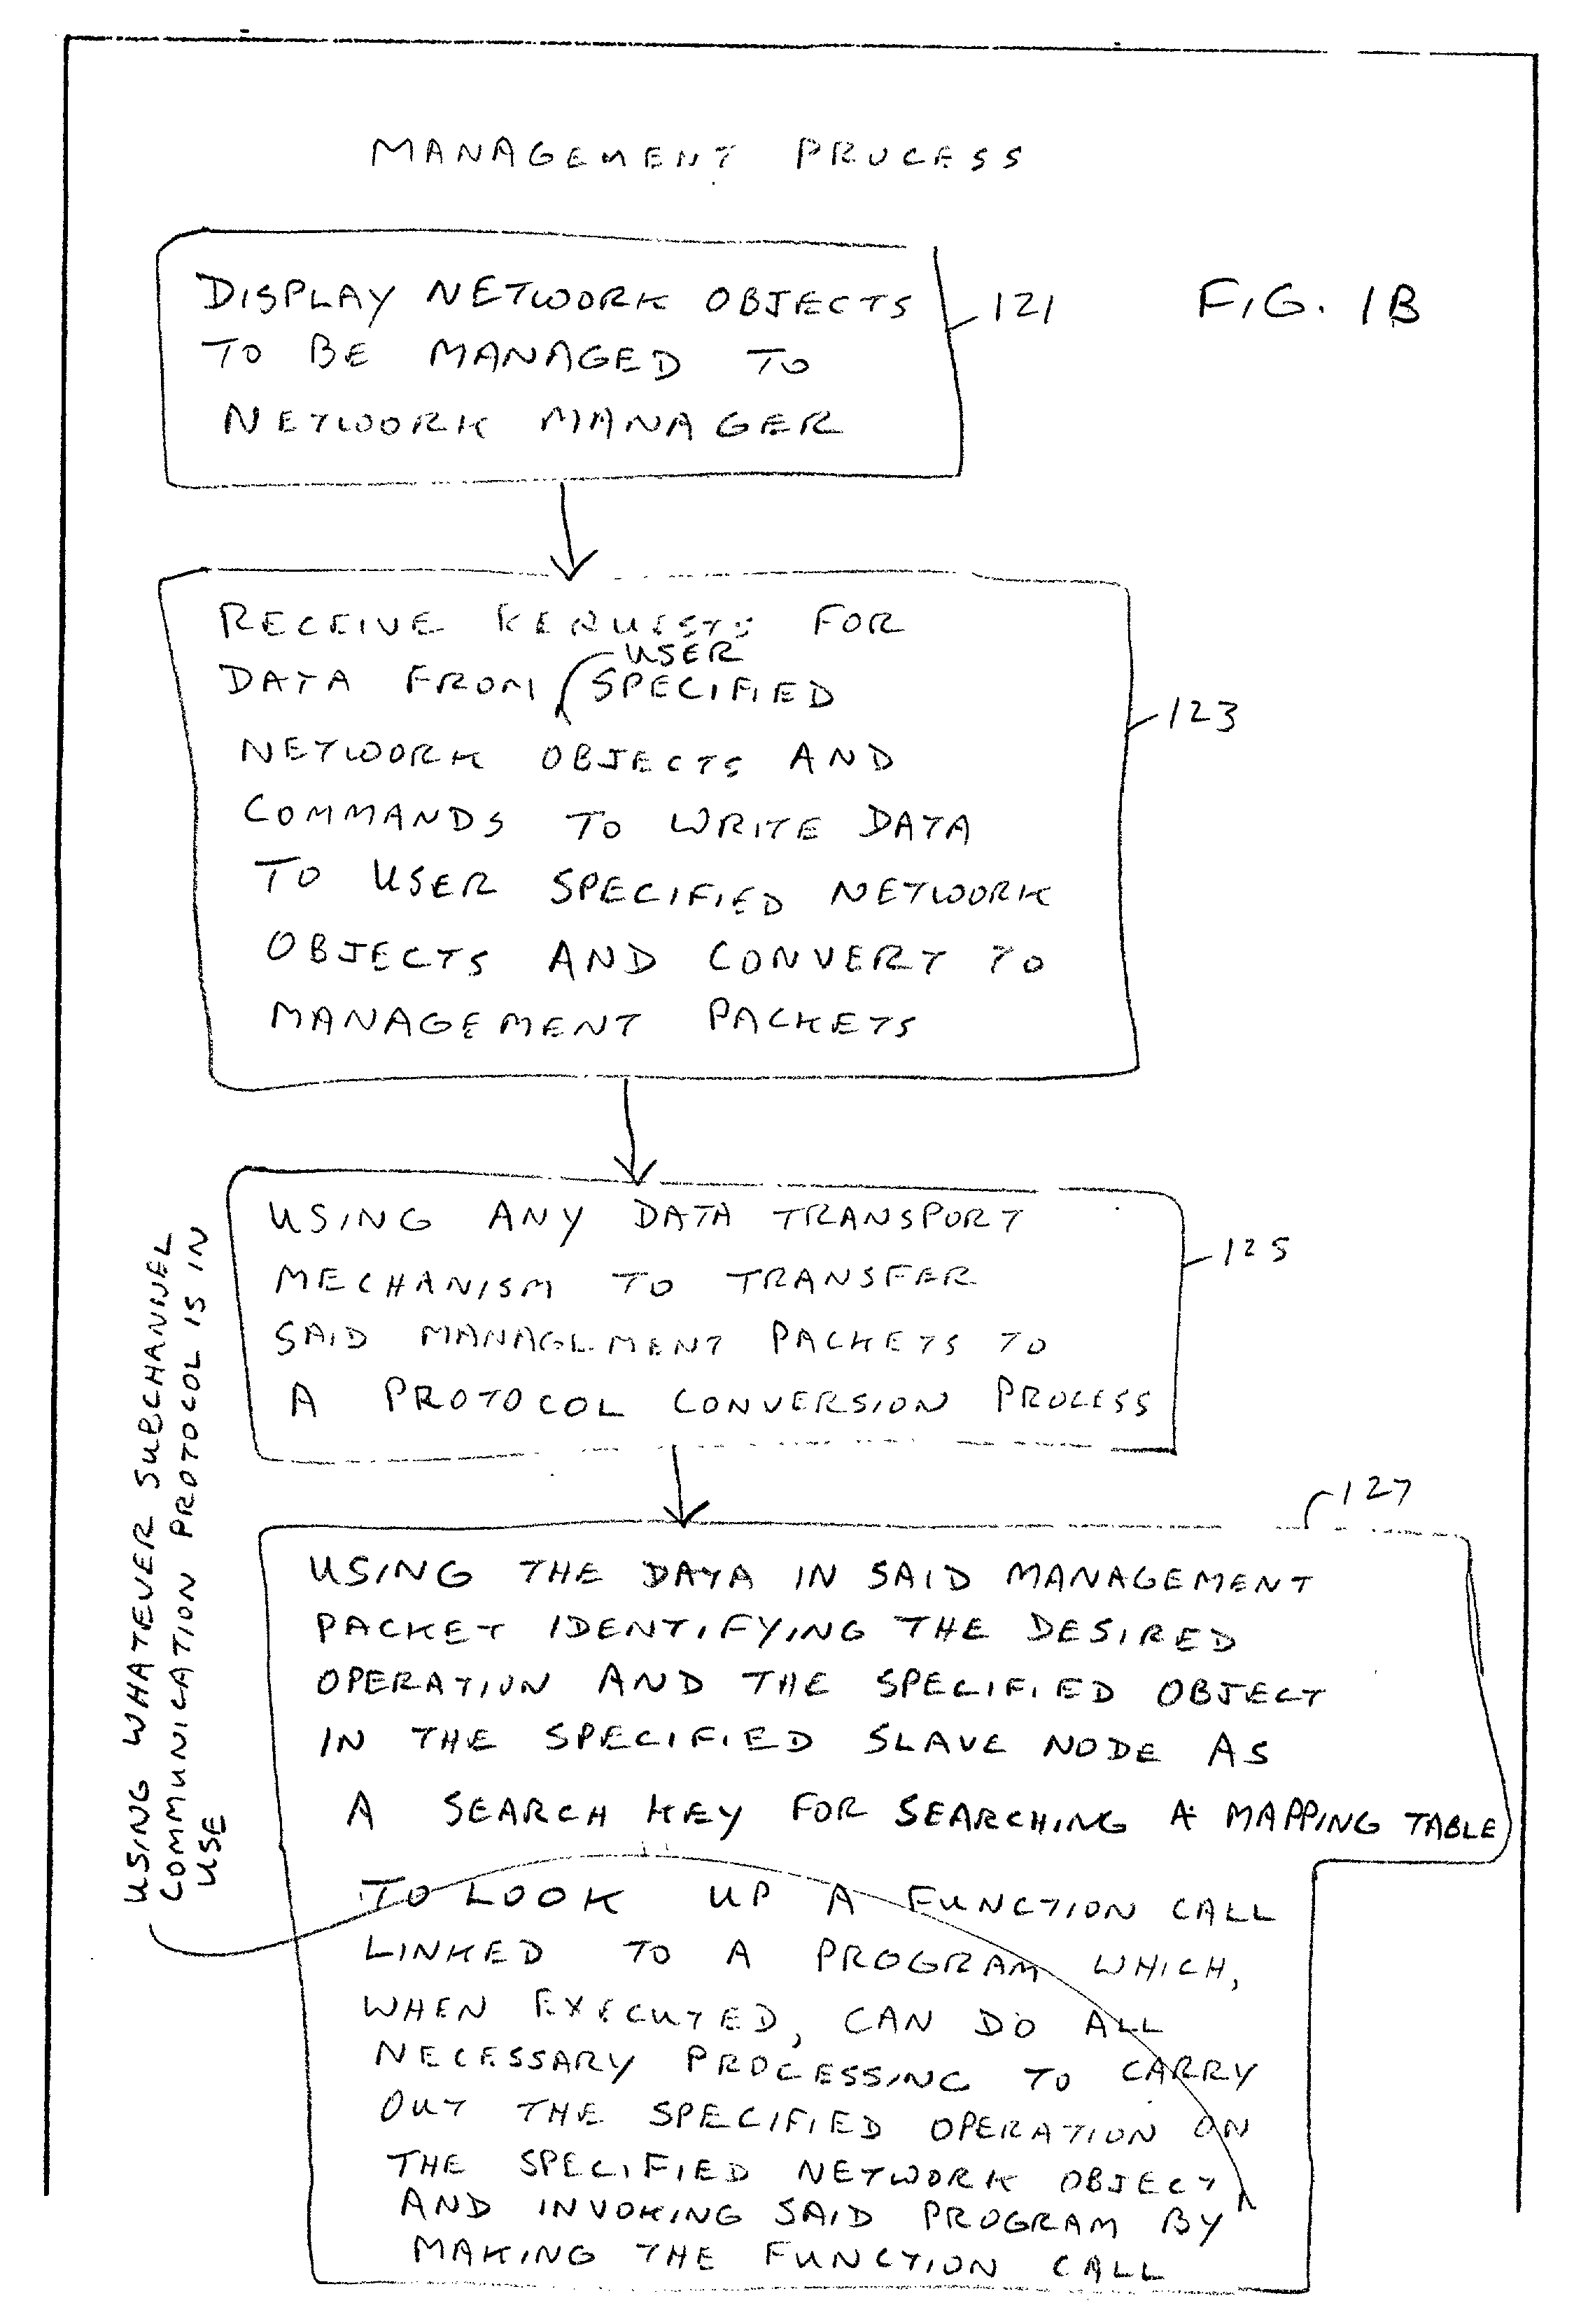 MANAGEMENT PROCESS
DISPLAY NETWORK OBJECTS
TO BE MANAGED TO
NETWORK MANAGER
121
FIG. 1B
RECEIVE REQUESTS FOR
USER
DATA FROM SPECIFIED
NETWORK OBJECTS AND
COMMANDS TO WRITE DATA
TO USER SPECIFIED NETWORK
OBJECTS AND CONVERT TO
MANAGEMENT PACKETS
123
USING ANY DATA TRANSPORT
MECHANISM TO TRANSFER
SAID MANAGEMENT PACKETS TO
A PROTOCOL CONVERSION PROCESS
125
127
USING THE DATA IN SAID MANAGEMENT
PACKET IDENTIFYING THE DESIRED
OPERATION AND THE SPECIFIED OBJECT
IN THE SPECIFIED SLAVE NODE AS
A SEARCH KEY FOR SEARCHING A MAPPING TABLE
TO LOOK UP A FUNCTION CALL
LINKED TO A PROGRAM WHICH,
WHEN EXECUTED, CAN DO ALL
NECESSARY PROCESSING TO CARRY
OUT THE SPECIFIED OPERATION ON
THE SPECIFIED NETWORK OBJECT
AND INVOKING SAID PROGRAM BY
MAKING THE FUNCTION CALL
USING WHATEVER SUBCHANNEL
COMMUNICATION PROTOCOL IS IN
USE